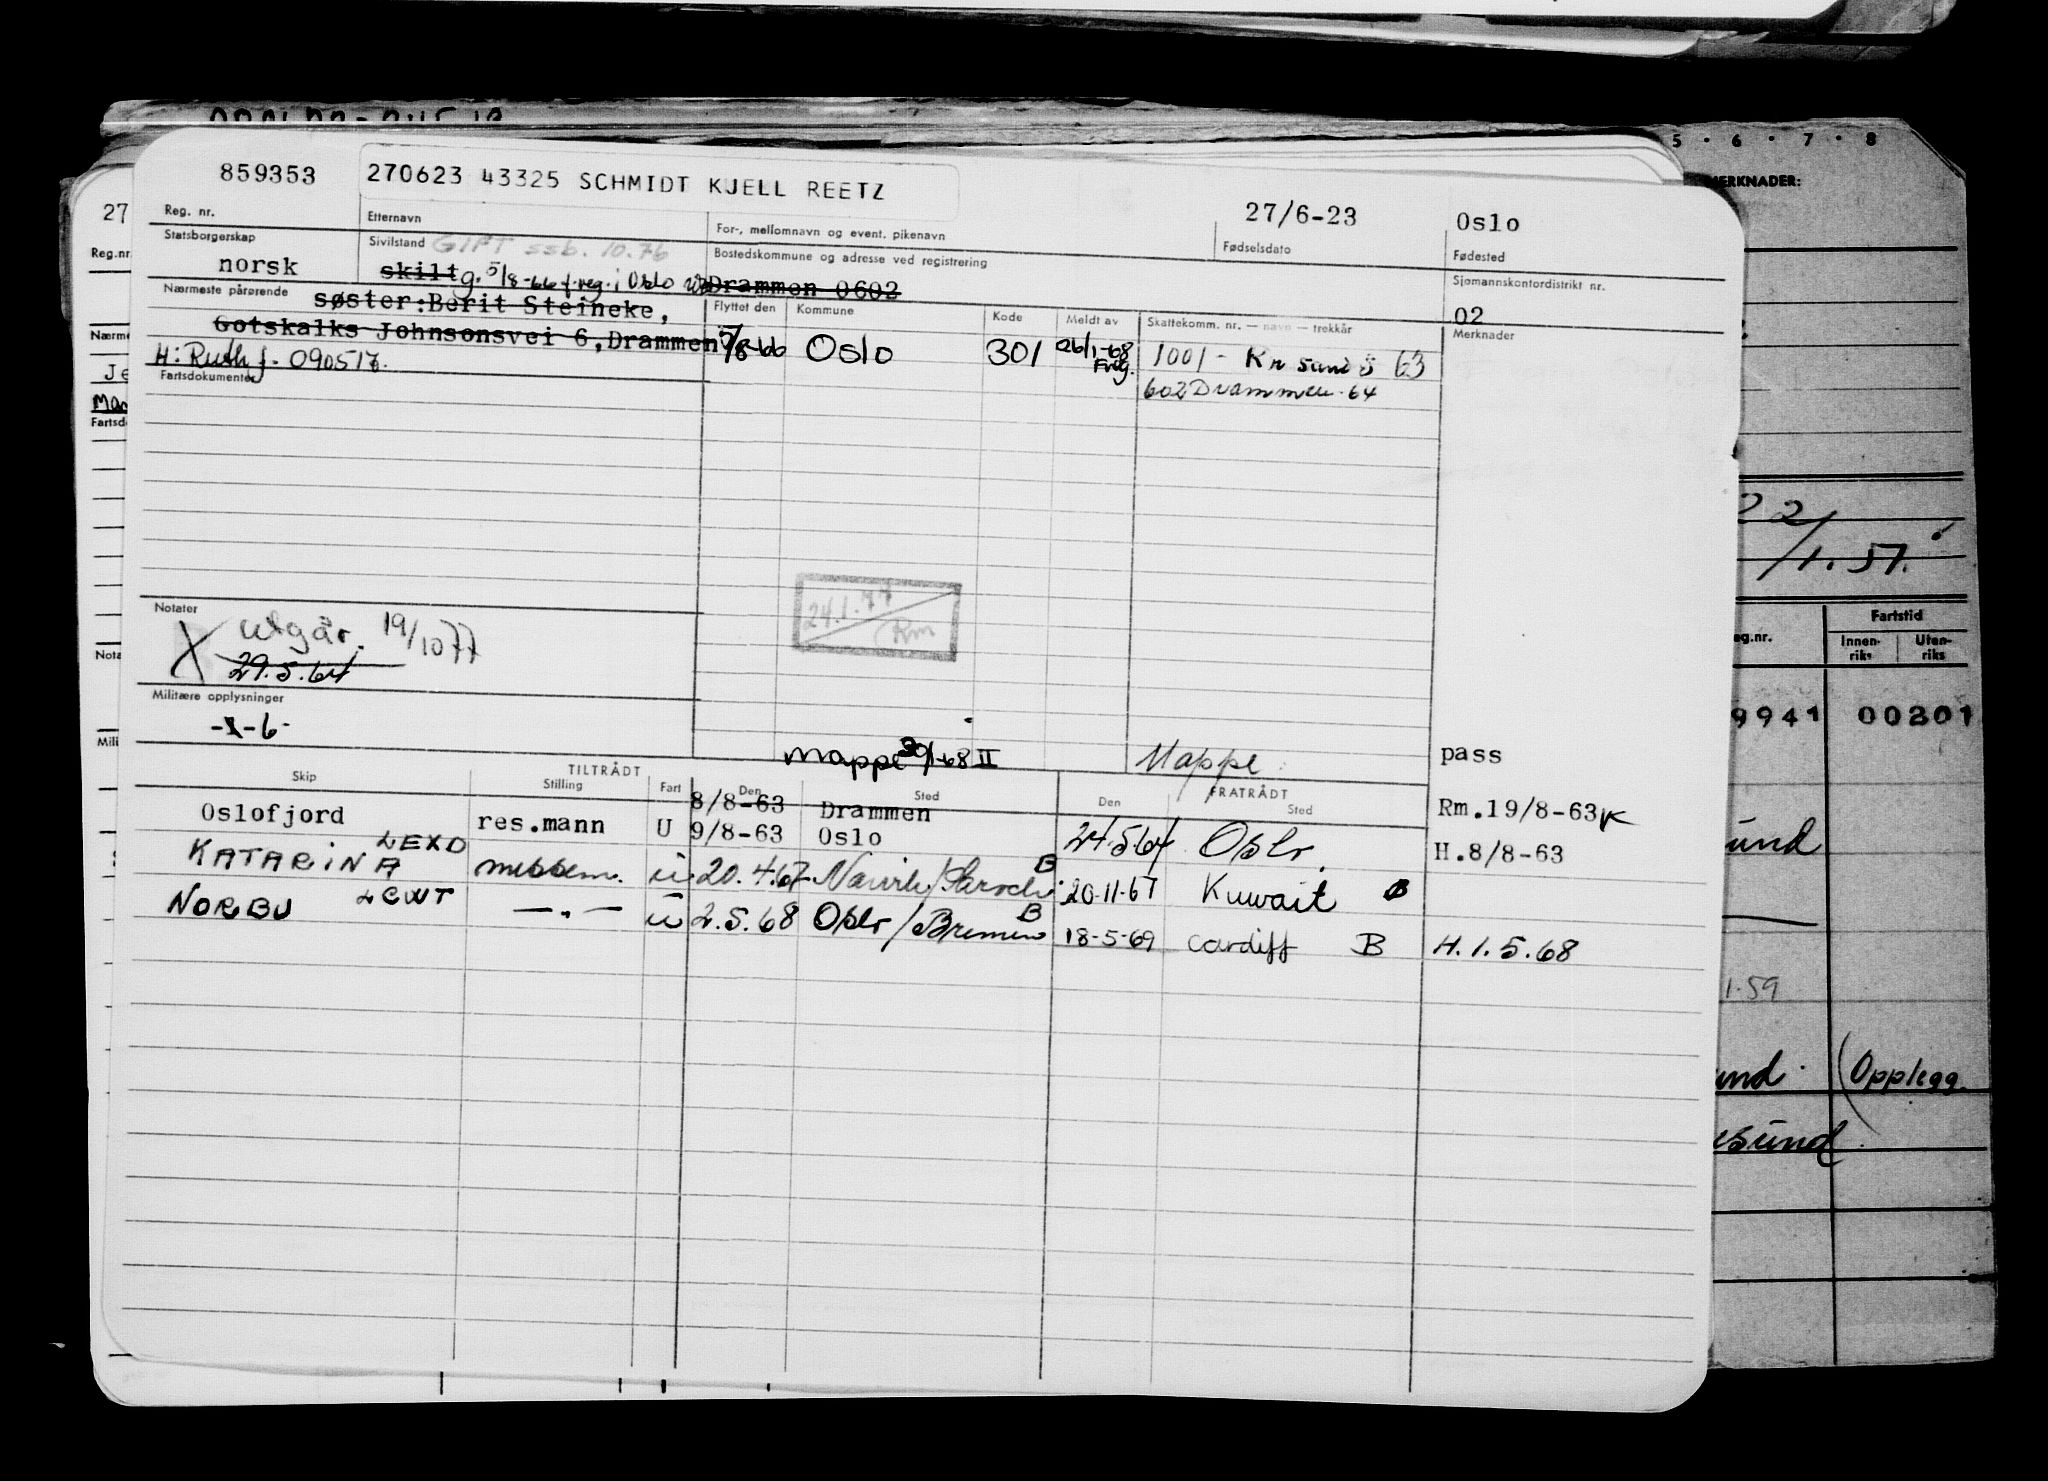 5 · 6 · 7 · 8
MERKNADER:
859353
270623 43325 SCHMIDT KJELL REETZ
27/6-23
Oslo
27
Reg. nr.
Etternavn
For-, mellomnavn og event. pikenavn
Fødselsdato
Fødested
Reg.nr.
Statsborgerskap
Sivilstand GIFT ssb. 10.76
Bostedskommune og adresse ved registrering
Sjømannskontordistrikt nr.
norsk
skilt g. 5/8-66 f.reg. i Oslo
Drammen 0602
02
Nærmeste pårørende
søster: Berit Steineke,
Gotskalks Johnsonsvei 6, Drammen
H: Ruth f. 090517.
Flyttet den
Kommune
Kode
Meldt av
Skattekomm. nr. — navn — trekkår
Merknader
5/8-66
Oslo
301
26/1-68
Freg.
1001 - Kr sund S 63
602 Drammen - 64
Fartsdokumenter
22/1.51.
Notater
utgår. 19/10 77
X 29.5.64
24.1.77
Rm
Militære opplysninger
-1-6-
Mappe 30/1-68 II
Mappe
pass
Fartstid
Innen-
riks
Uten-
riks
9941
00201
TILTRÅDT
FRATRÅDT
Skip
Stilling
Fart
Den
Sted
Den
Sted
8/8-63 Drammen
Rm.19/8-63 K
Oslofjord res.mann U 9/8-63 Oslo 24.5.64 Oslo H.8/8-63
KATARINA LEXD messem. u 20.4.67 B 20-11-67 Kuwait B
NORBU LCWT —.— u 2.5.68 Oslo/Bremen B 18-5-69 Cardiff B H.1.5.68
und
1.59
und. (Opplegg.
esund.